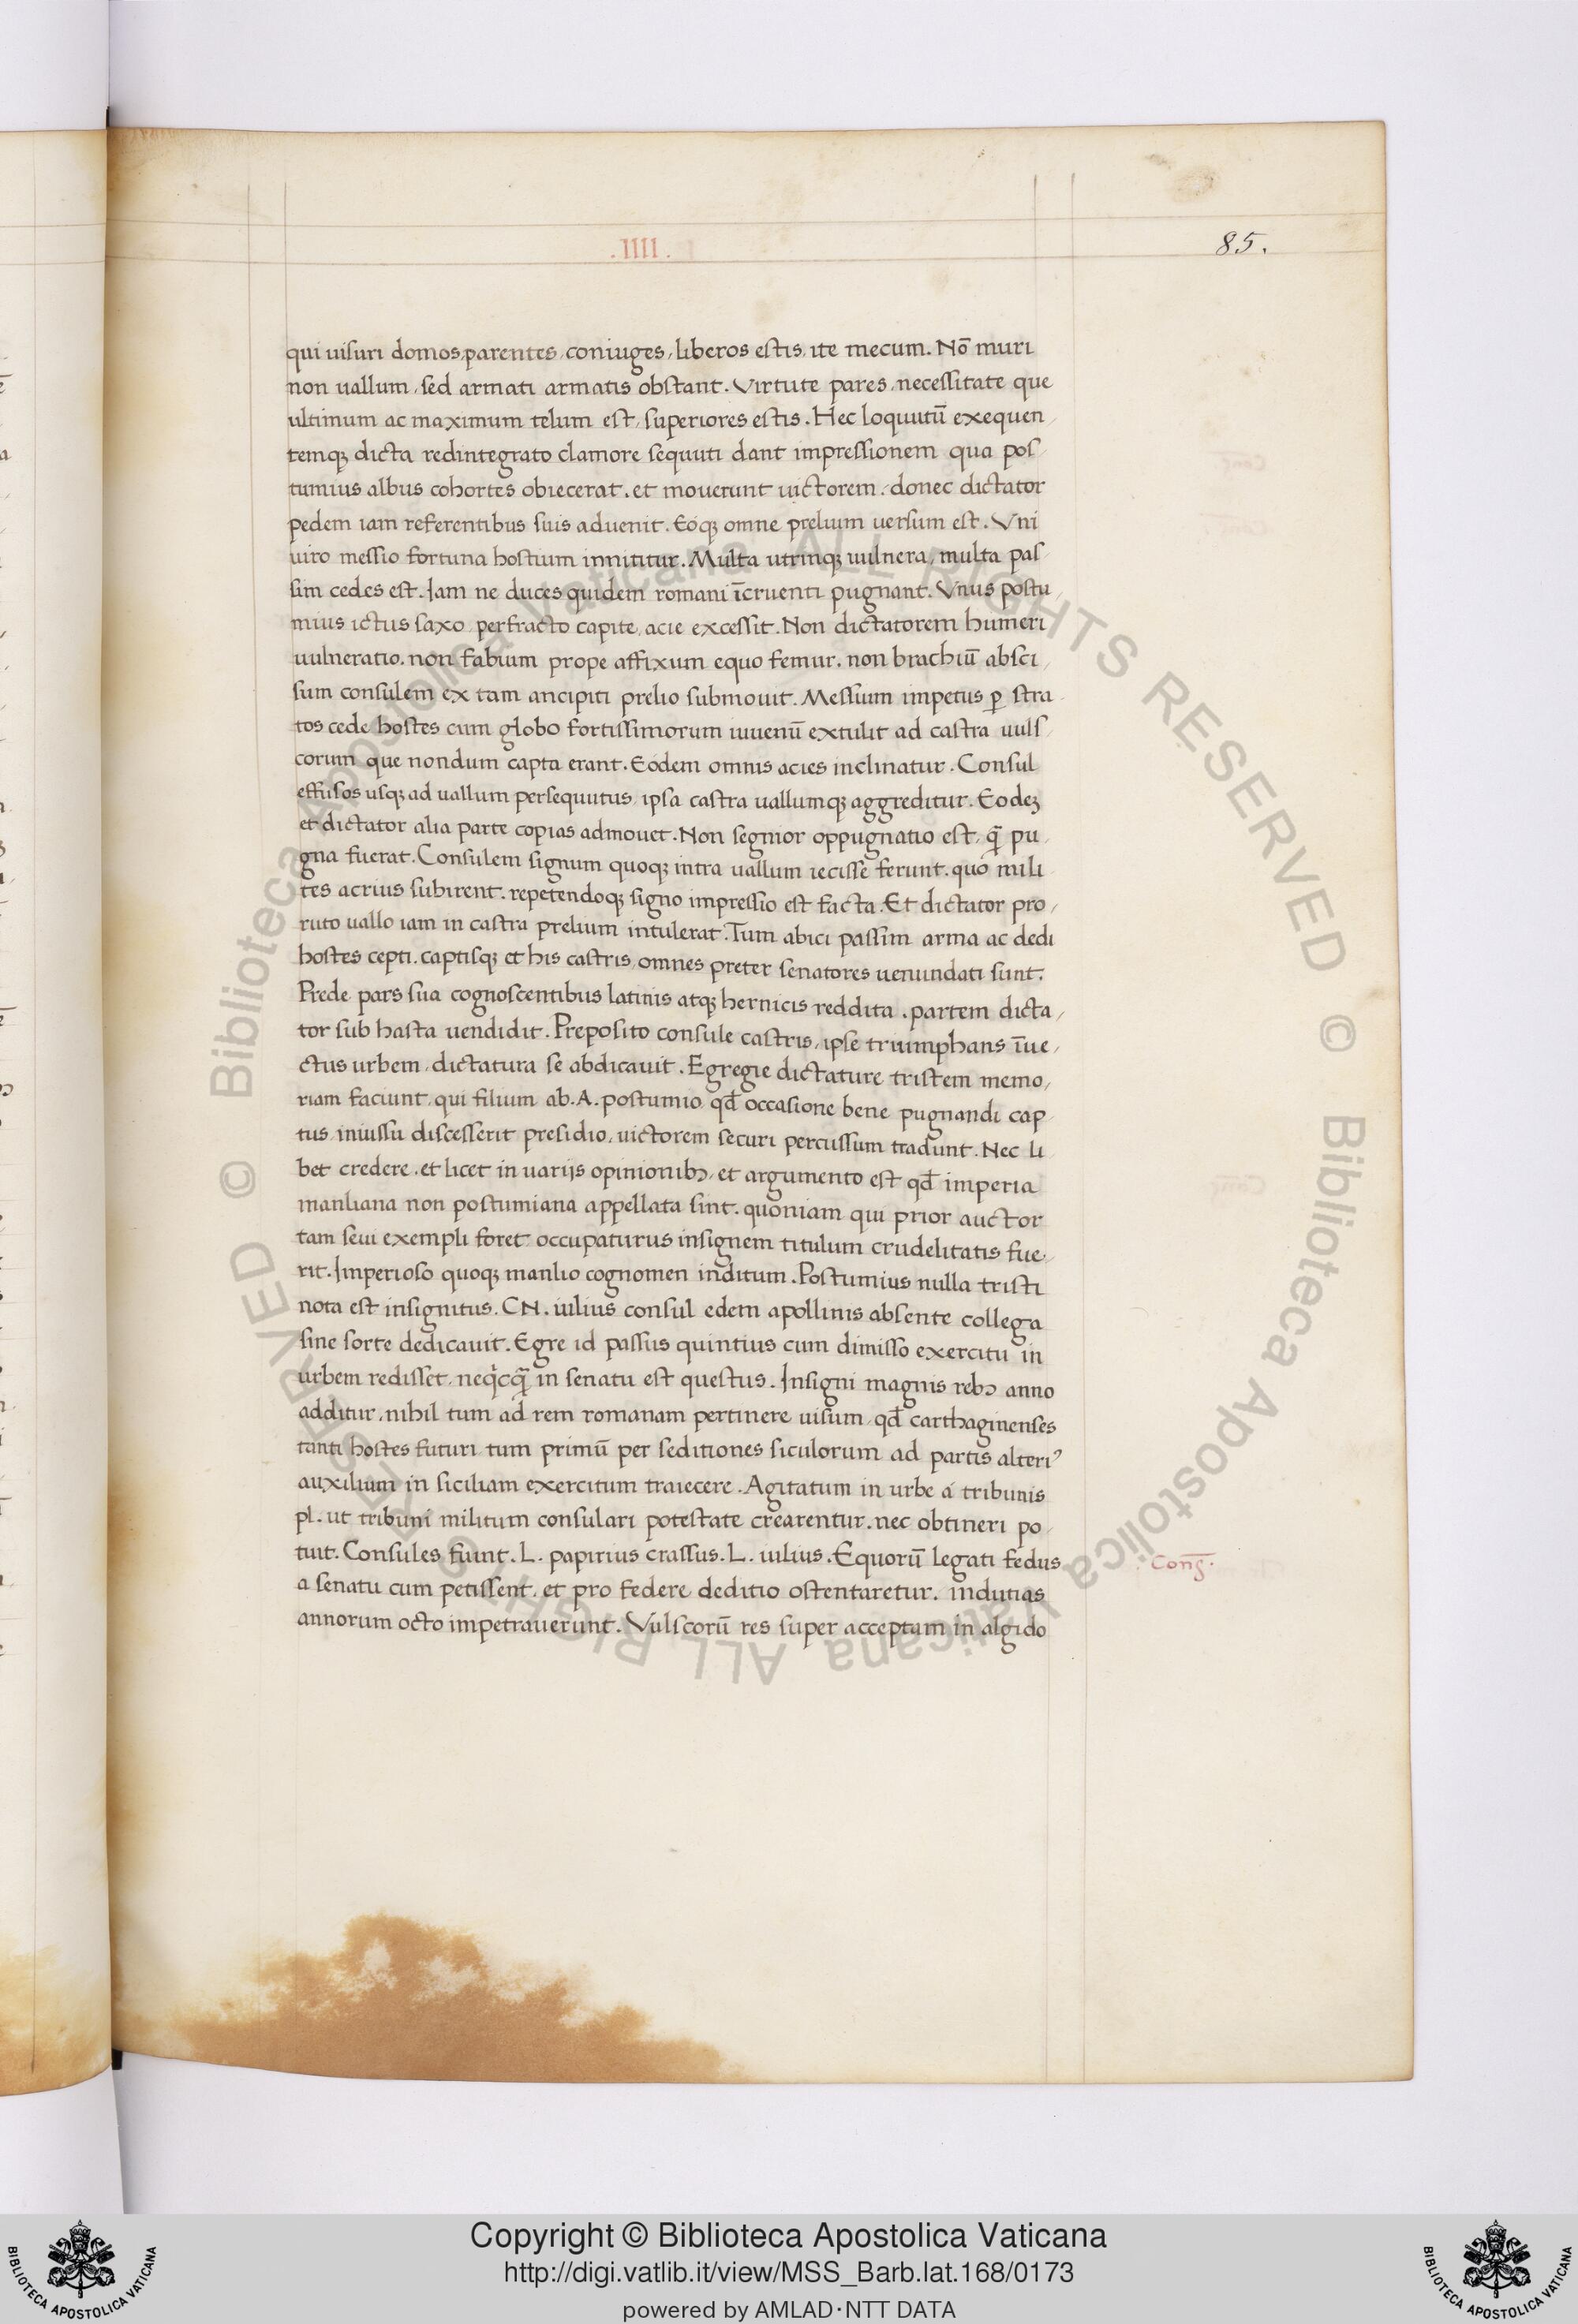 .IIII.
85.
qui uisuri domos, parentes, coniuges, liberos estis, ite mecum. Nō muri
non uallum, sed armati armatis obstant. Virtute pares, necessitate que
ultimum ac maximum telum est, superiores estis. Hec loquutū exequen,
temqꝫ dicta redintegrato clamore sequuti dant impressionem qua pos,
tumius albus cohortes obiecerat. et mouerunt uictorem. donec dictator
pedem iam referentibus suis aduenit. Eoqꝫ omne prelium uersum est. Vni
uiro messio fortuna hostium innititur. Multa utrinqꝫ uulnera, multa pas,
sim cedes est. Iam ne duces quidem romani īcruenti pugnant. Vnus postu,
mius ictus saxo, perfracto capite, acie excessit. Non dictatorem humeri
uulneratio. non fabium prope affixum equo femur. non brachiū absci,
sum consulem ex tam ancipiti prelio submouit. Messium impetus ꝑ stra,
tos cede hostes cum globo fortissimorum iuuenū extulit ad castra uuls,
corum que nondum capta erant. Eodem omnis acies inclinatur. Consul
effusos usqꝫ ad uallum persequutus, ipsa castra uallumqꝫ aggreditur. Eodeꝫ
et dictator alia parte copias admouet. Non segnior oppugnatio est, q̄ pu,
gna fuerat. Consulem signum quoqꝫ intra uallum iecisse ferunt. quó mili,
tes acrius subirent. repetendoqꝫ signo impressio est facta. Et dictator pro,
ruto uallo iam in castra prelium intulerat. Tum abici passim arma ac dedi
hostes cepti. captisqꝫ et his castris, omnes preter senatores uenundati sunt.
Prede pars sua cognoscentibus latinis atqꝫ hernicis reddita. partem dicta,
tor sub hasta uendidit. Preposito consule castris, ipse triumphans īue,
ctus urbem, dictatura se abdicauit. Egregie dictature tristem memo,
riam faciunt, qui filium ab. A. postumio, qđ occasione bene pugnandi cap,
tus, iniussu discesserit presidio, uictorem securi percussum tradunt. Nec li,
bet credere, et licet in uarijs opinionibꝫ, et argumento est qđ imperia
manliana non postumiana appellata sint. quoniam qui prior auctor
tam seui exempli foret occupaturus insignem titulum crudelitatis fue,
rit. Imperioso quoqꝫ manlio cognomen inditum. Postumius nulla tristi
nota est insignitus. CN. iulius consul edem apollinis absente collega
sine sorte dedicauit. Egre id passus quintius cum dimisso exercitu in
urbem redisset, neqͥcq̄ in senatu est questus. Insigni magnis rebꝫ anno
additur, nihil tum ad rem romanam pertinere uisum, qđ carthaginenses
tanti hostes futuri, tum primū per seditiones siculorum ad partis alteriꝰ
auxilium in siciliam exercitum traiecere. Agitatum in urbe á tribunis
pl. ut tribuni militum consulari potestate crearentur. nec obtineri po,
tuit. Consules fuint. L. papirius crassus. L. iulius. Equorū legati fedus
a senatu cum petissent, et pro federe deditio ostentaretur. indutias
annorum octo impetrauerunt. Vulscorū res super acceptam in algido
Coñs.
Copyright © Biblioteca Apostolica Vaticana
http://digi.vatlib.it/view/MSS_Barb.lat.168/0173
powered by AMLAD·NTT DATA
BIBLIOTECA APOSTOLICA VATICANA
BIBLIOTECA APOSTOLICA VATICANA
© Biblioteca Apostolica Vaticana ALL RIGHTS RESERVED
© Biblioteca Apostolica Vaticana ALL RIGHTS RESERVED